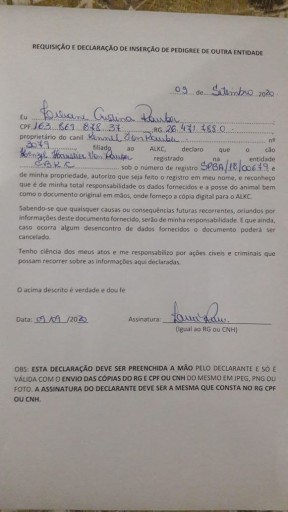 REQUISIÇÃO E DECLARAÇÃO DE INSERÇÃO DE PEDIGREE DE OUTRA ENTIDADE
09 de Setembro 2020.
Eu Cristina
CPF RG
proprietário do canil Kennel Von nº
3079 filiado ao ALKC, declaro que o cão
Von registrado na entidade
CBKC sob o número de registro SPBA/18/00679 e
de minha propriedade, autorizo que seja feito o registro em meu nome, e reconheço
que é de minha total responsabilidade os dados fornecidos e a posse do animal bem
como o documento original em mãos, onde forneço a cópia digital para o ALKC.
Sabendo-se que quaisquer causas ou consequências futuras recorrentes, oriundos por
informações deste documento fornecido, serão de minha responsabilidade. E que ainda,
caso ocorra algum desencontro de dados fornecidos o documento poderá ser
cancelado.
Tenho ciência dos meus atos e me responsabilizo por ações cíveis e criminais que
possam recorrer sobre as informações aqui declaradas.
O acima descrito é verdade e dou fé
Data: 09/09 /2020 Assinatura:
(Igual ao RG ou CNH)
OBS: ESTA DECLARAÇÃO DEVE SER PREENCHIDA A MÃO PELO DECLARANTE E SÓ É
VÁLIDA COM O ENVIO DAS CÓPIAS DO RG E CPF OU CNH DO MESMO EM JPEG, PNG OU
FOTO. A ASSINATURA DO DECLARANTE DEVE SER A MESMA QUE CONSTA NO RG CPF
OU CNH.